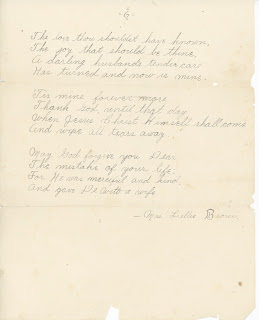 - 6 -
The love thou shouldst have known,
The joy that should be thine,
A darling husbands tender care
Has turned and now is mine.
Tis mine forever more
Thank God, until that day
When Jesus Christ Himself shall come
And wipe all tears away.
May God forgive you Dear
The mistake of your life.
For He was merciful and kind
And gave DeWitt a wife.
— Mrs. Lillie Brown